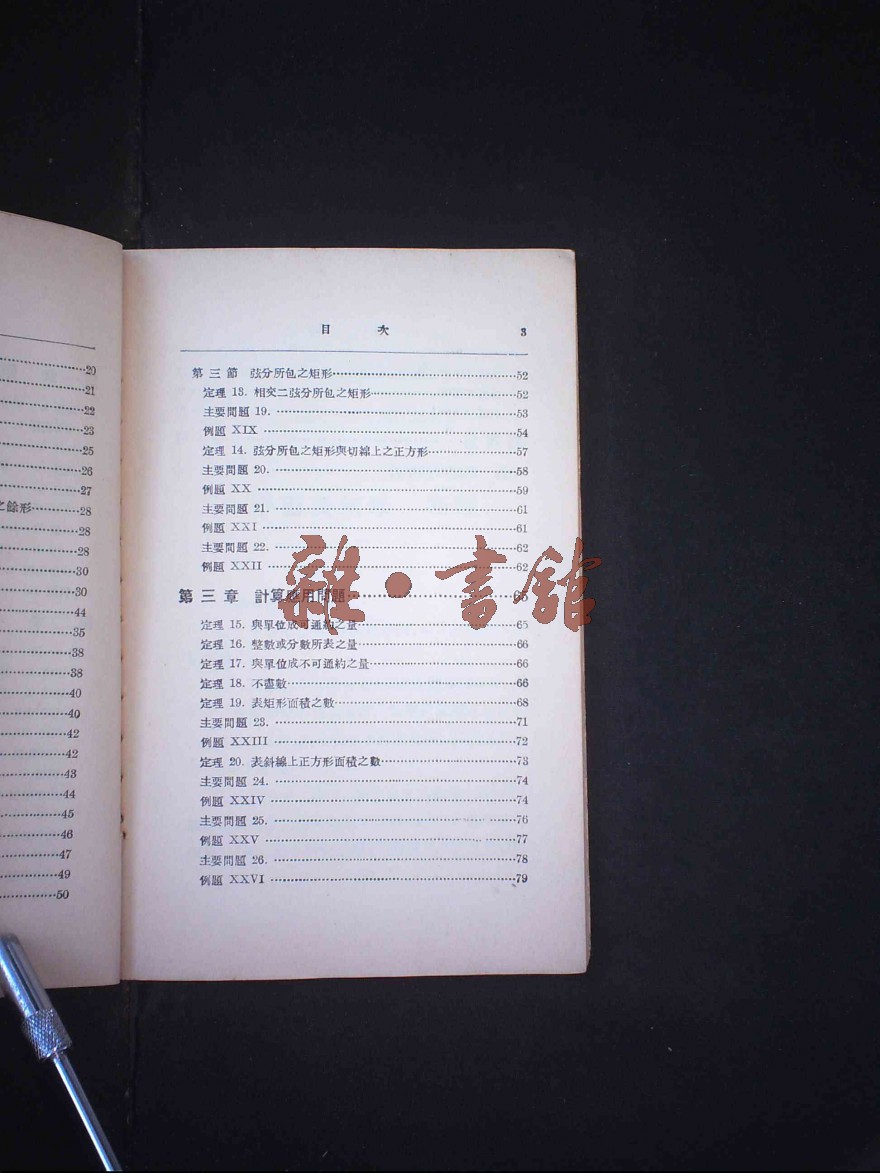 20
21
22
23
25
26
27
之餘形 28
28
28
30
30
44
35
38
38
40
40
42
42
43
44
45
46
47
49
50
目 次 3
第三節 弦分所包之矩形 52
定理 13. 相交二弦分所包之矩形 52
主要問題 19. 53
例題 XIX 54
定理 14. 弦分所包之矩形與切線上之正方形 57
主要問題 20. 58
例題 XX 59
主要問題 21. 61
例題 XXI 61
主要問題 22. 62
例題 XXII 62
第三章 計算應用問題 65
定理 15. 與單位成可通約之量 65
定理 16. 整數或分數所表之量 66
定理 17. 與單位成不可通約之量 66
定理 18. 不盡數 66
定理 19. 表矩形面積之數 68
主要問題 23. 71
例題 XXIII 72
定理 20. 表斜線上正方形面積之數 73
主要問題 24. 74
例題 XXIV 74
主要問題 25. 76
例題 XXV 77
主要問題 26. 78
例題 XXVI 79
雜·書館